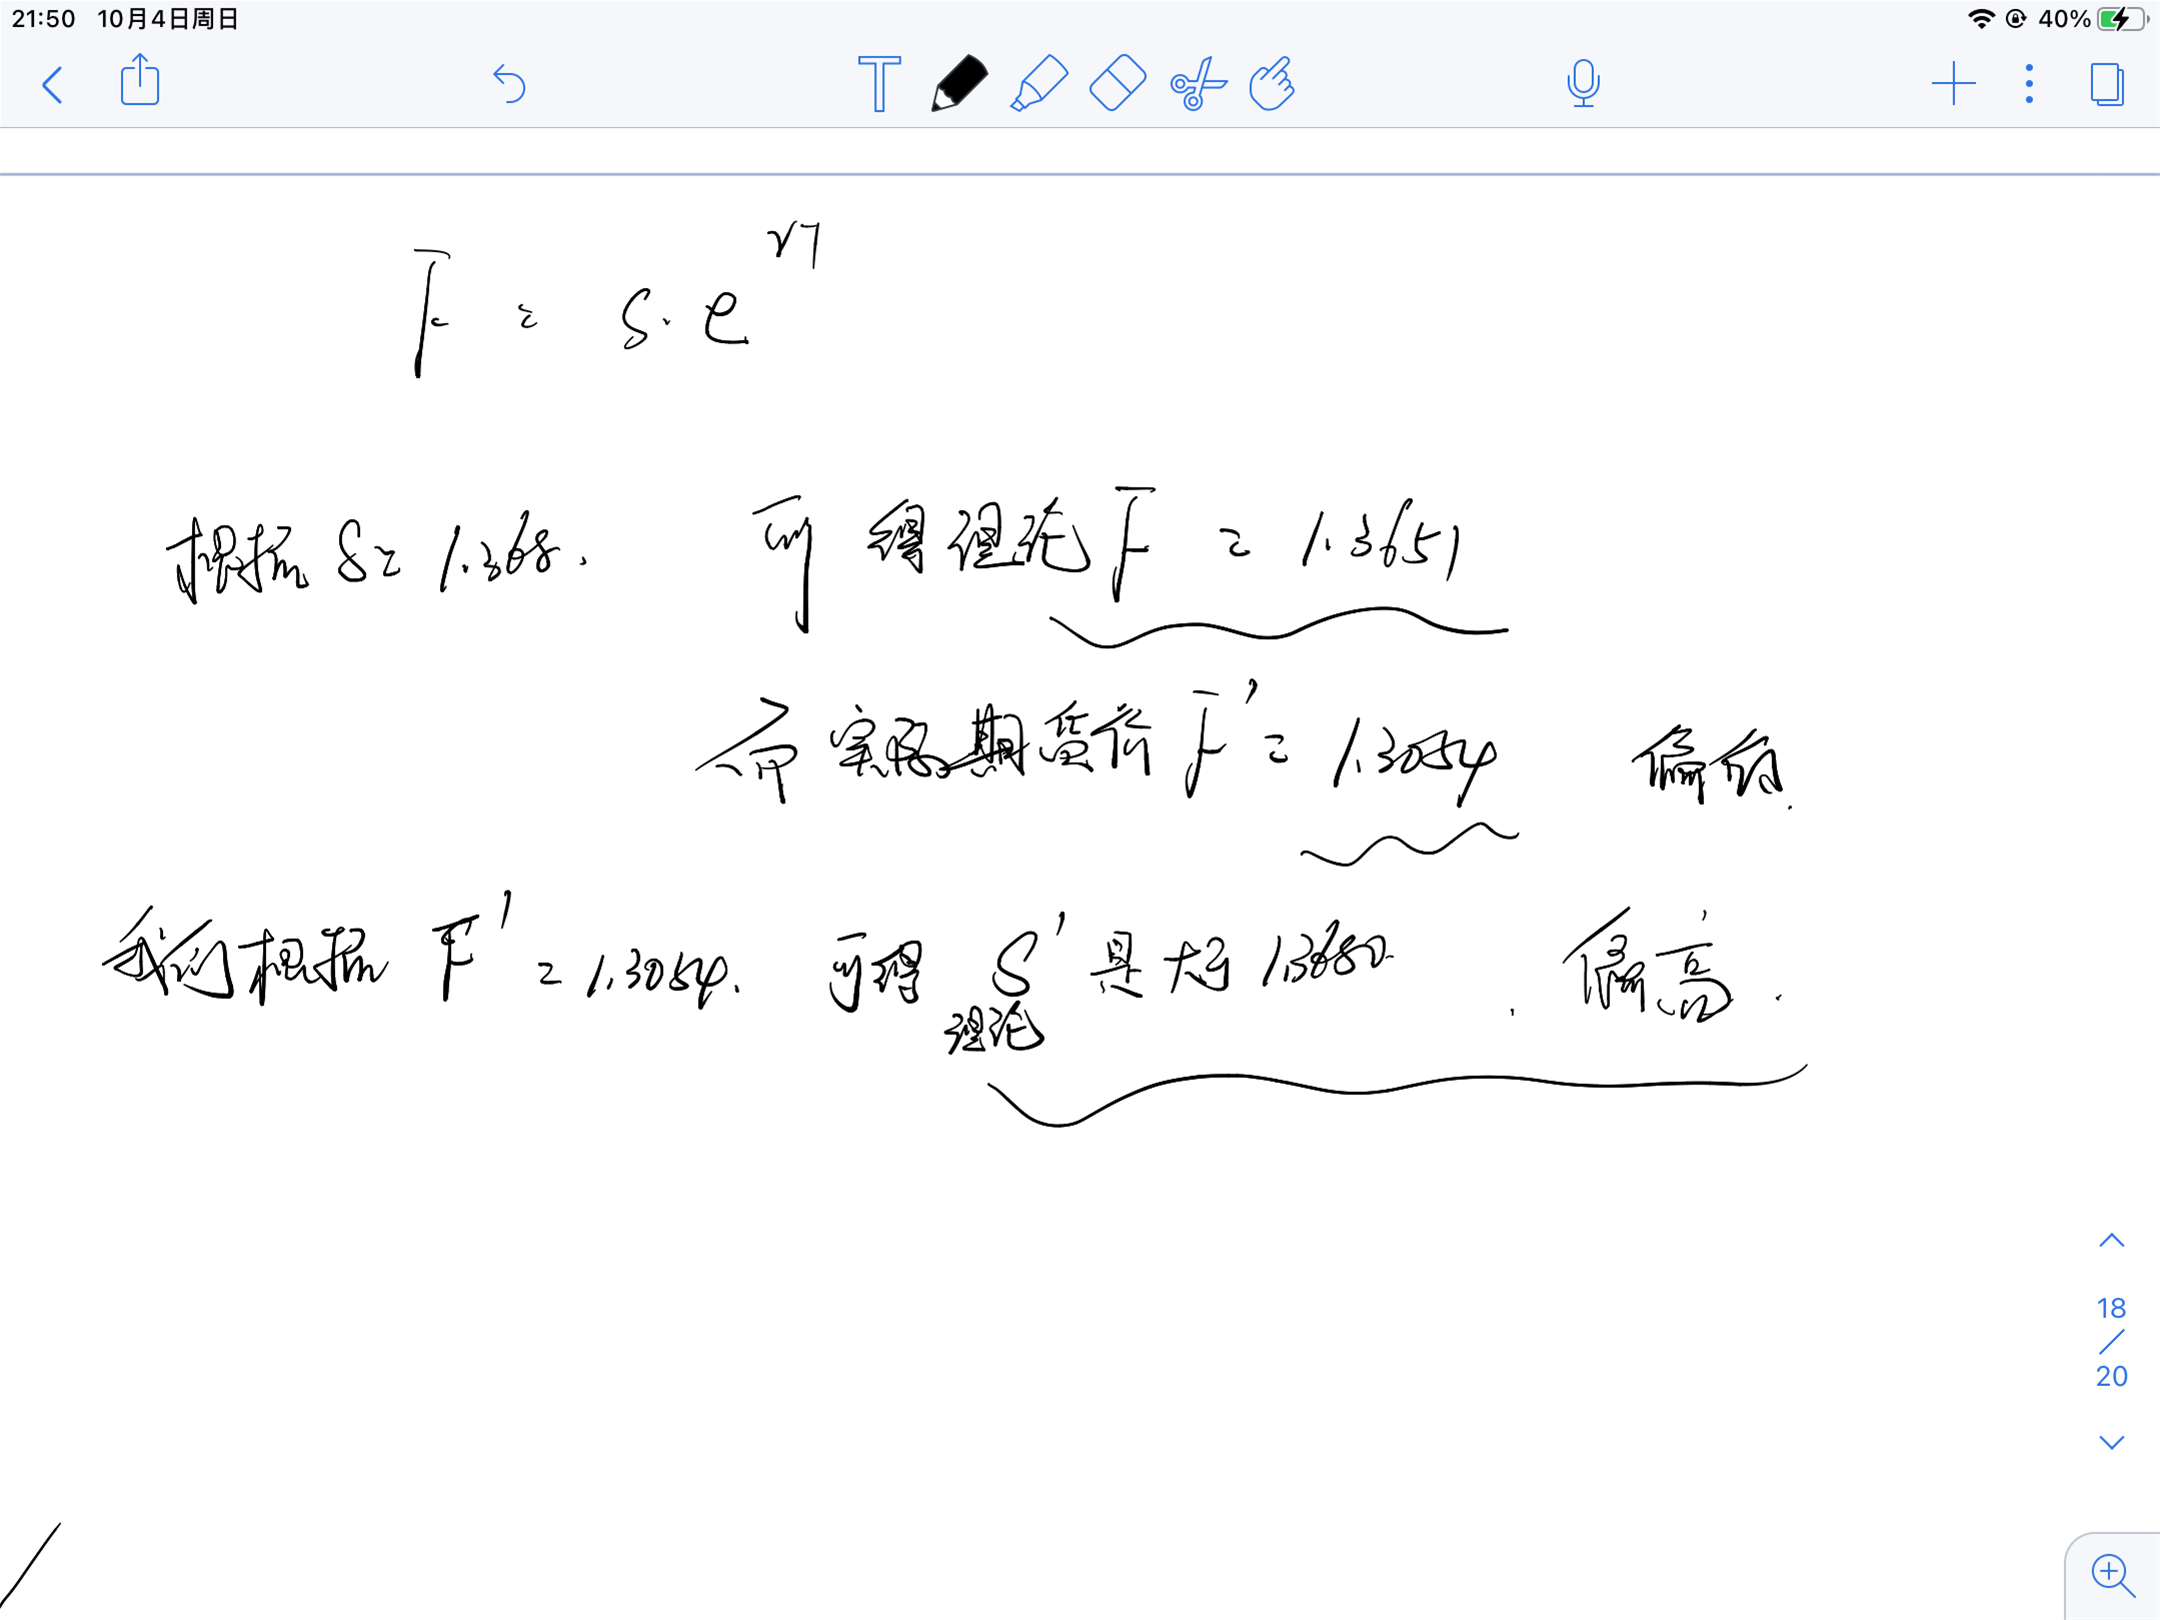 21:50 10月4日周日
40%
T
F = S·e^{rT}
根据 S=1.368. 可得理论F = 1.3651
而实际期货价 F' = 1.3054 偏低.
我们根据 F' = 1.3054. 可得 S' 是大于 1.3680. 偏高.
理论
18
/
20